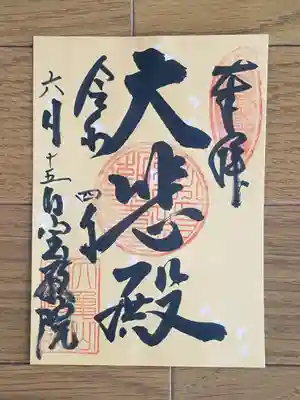 奉拝
大悲殿
令和四年
六月十五日
宝蔵院